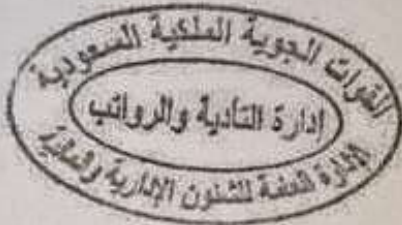 القوات الجوية الملكية السعودية
إدارة التأدية والرواتب
الإدارة العامة للشئون الإدارية والمالية